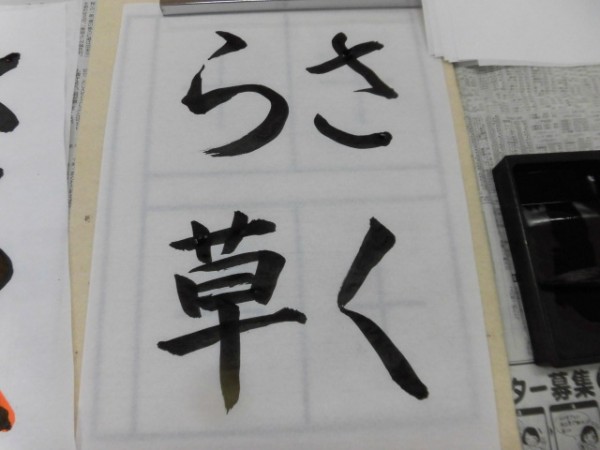 さく
ら草
ター募集